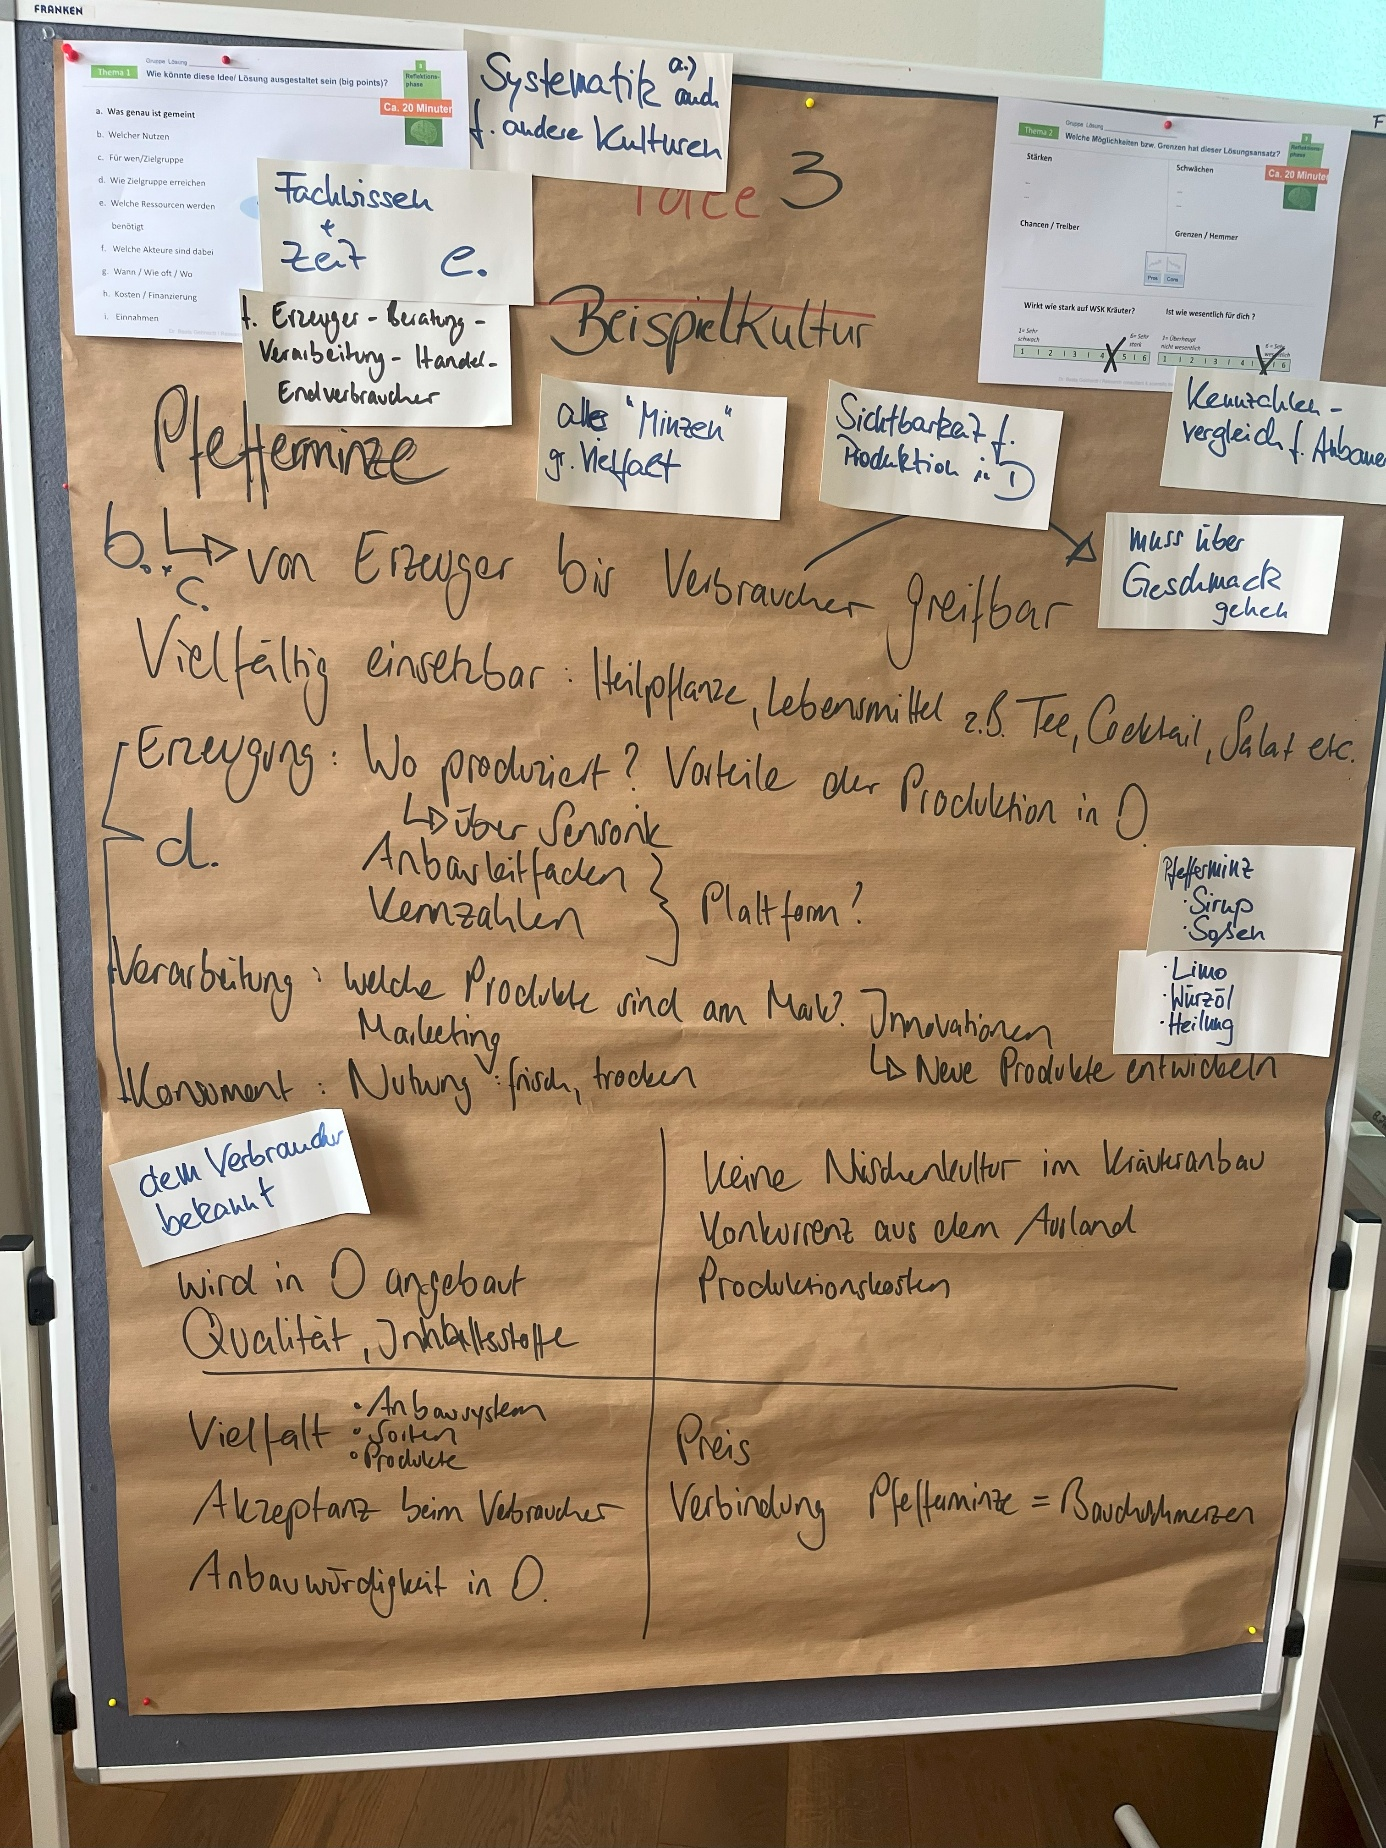 FRANKEN
Gruppe Lösung
Thema 1
Wie könnte diese Idee/ Lösung ausgestaltet sein (big points)?
3
Reflektions-
phase
Ca. 20 Minuten
a. Was genau ist gemeint
b. Welcher Nutzen
c. Für wen/Zielgruppe
d. Wie Zielgruppe erreichen
e. Welche Ressourcen werden
benötigt
f. Welche Akteure sind dabei
g. Wann / Wie oft / Wo
h. Kosten / Finanzierung
i. Einnahmen
Systematik a.) auch
f. andere Kulturen
Fachwissen
+
Zeit e.
f. Erzeuger - Beratung -
Verarbeitung - Handel -
Endverbraucher
Idee 3
Beispielkultur
Gruppe Lösung
Thema 2
Welche Möglichkeiten bzw. Grenzen hat dieser Lösungsansatz?
Reflektions-
phase
Ca. 20 Minuten
Stärken
Schwächen
Chancen / Treiber
Grenzen / Hemmer
Pros Cons
Wirkt wie stark auf WSK Kräuter?
Ist es wesentlich für dich ?
1= Sehr
schwach
6= Sehr
stark
1= Überhaupt
nicht wesentlich
1 2 3 4 X 5 6
1 2 3 4 X 6
Pfefferminze
alles "Minzen"
gr. Vielfalt
Sichtbarkeit f.
Produktion in D
Kennzahlen-
vergleich f. Anbauer
muss über
Geschmack
gehen
b. + c. ↳ von Erzeuger bis Verbraucher greifbar
Vielfältig einsetzbar : Heilpflanze, Lebensmittel z.B. Tee, Cocktail, Salat etc.
d.
Erzeugung : Wo produziert? Vorteile der Produktion in D.
↳ über Sensorik
Anbauleitfaden
Kennzahlen } Plattform?
Pfefferminz
· Sirup
· Soßen
· Limo
· Würzöl
· Heilung
Verarbeitung : welche Produkte sind am Mark? Innovationen
Marketing
↳ Neue Produkte entwickeln
Konsument : Nutzung : frisch, trocken
dem Verbraucher
bekannt
wird in D angebaut
Qualität, Inhaltsstoffe
Keine Nischenkultur im Kräuteranbau
Konkurrenz aus dem Ausland
Produktionskosten
Vielfalt
• Anbausystem
• Sorten
• Produkte
Akzeptanz beim Verbraucher
Anbauwürdigkeit in D.
Preis
Verbindung Pfefferminze = Bauchschmerzen